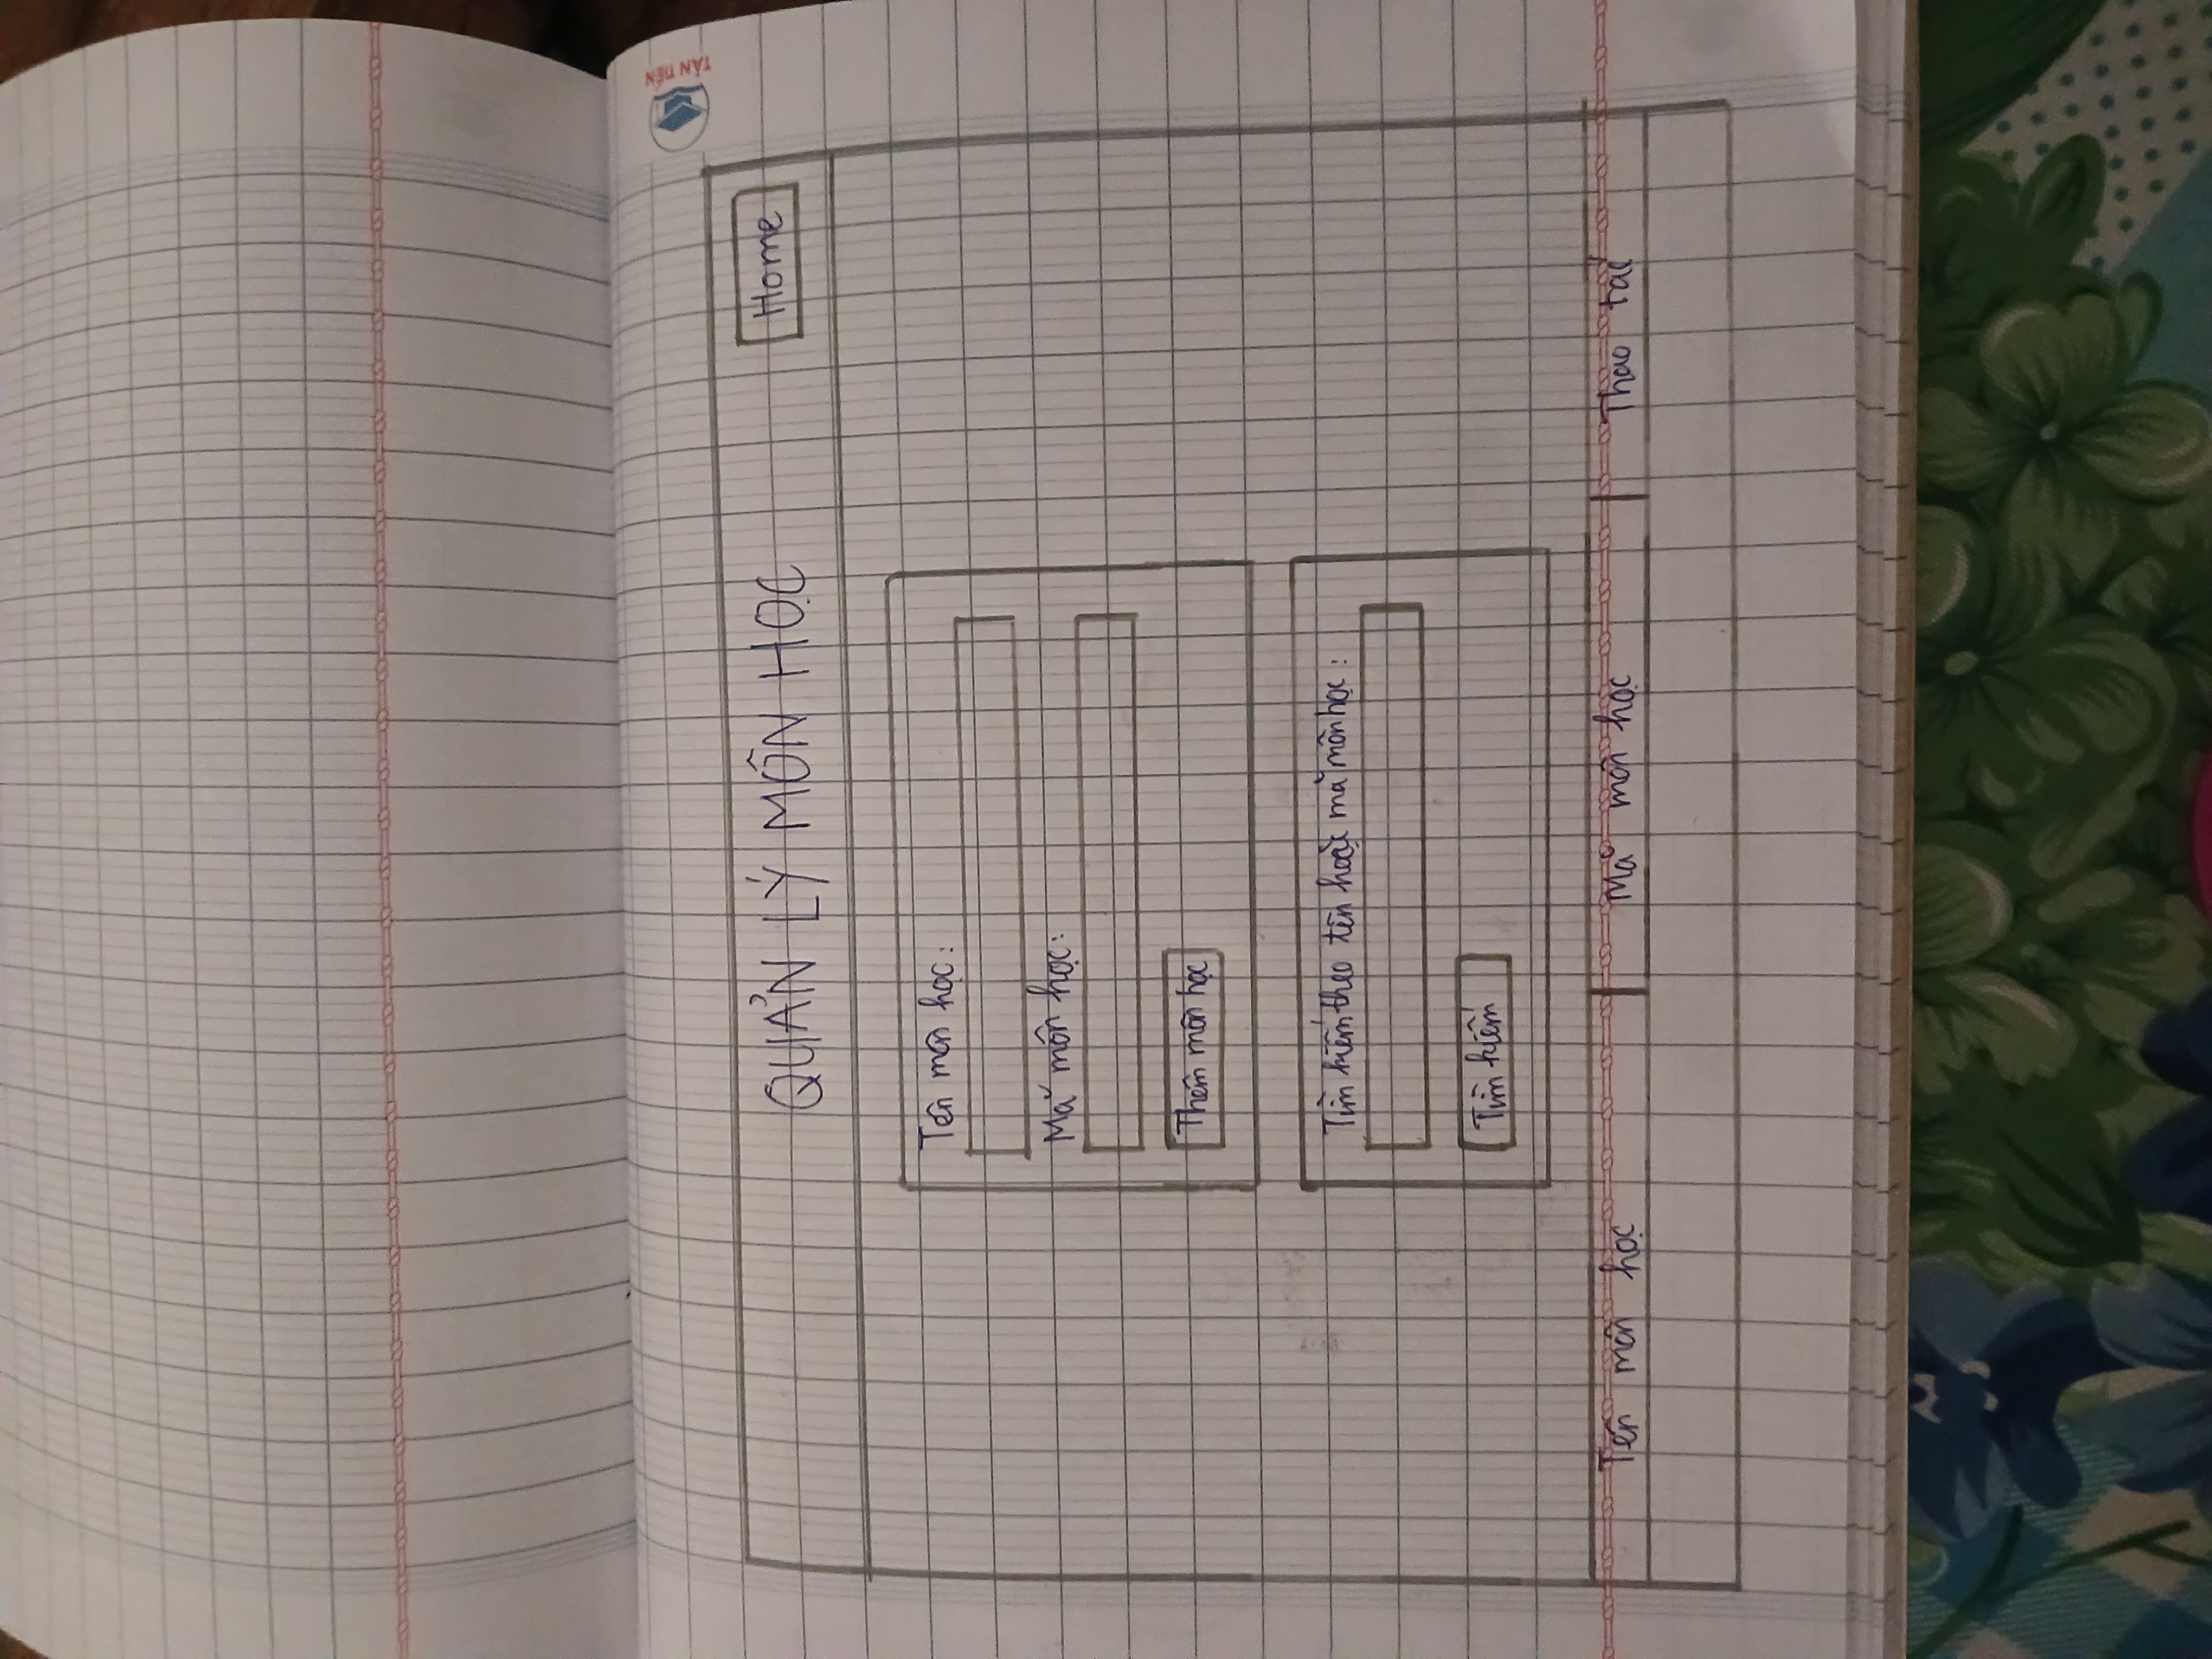 TÂN TIẾN
QUẢN LÝ MÔN HỌC
Home
Tên môn học:
Mã môn học:
Thêm môn học
Tìm kiếm theo tên hoặc mã môn học:
Tìm kiếm
Tên môn học
Mã môn học
Thao tác